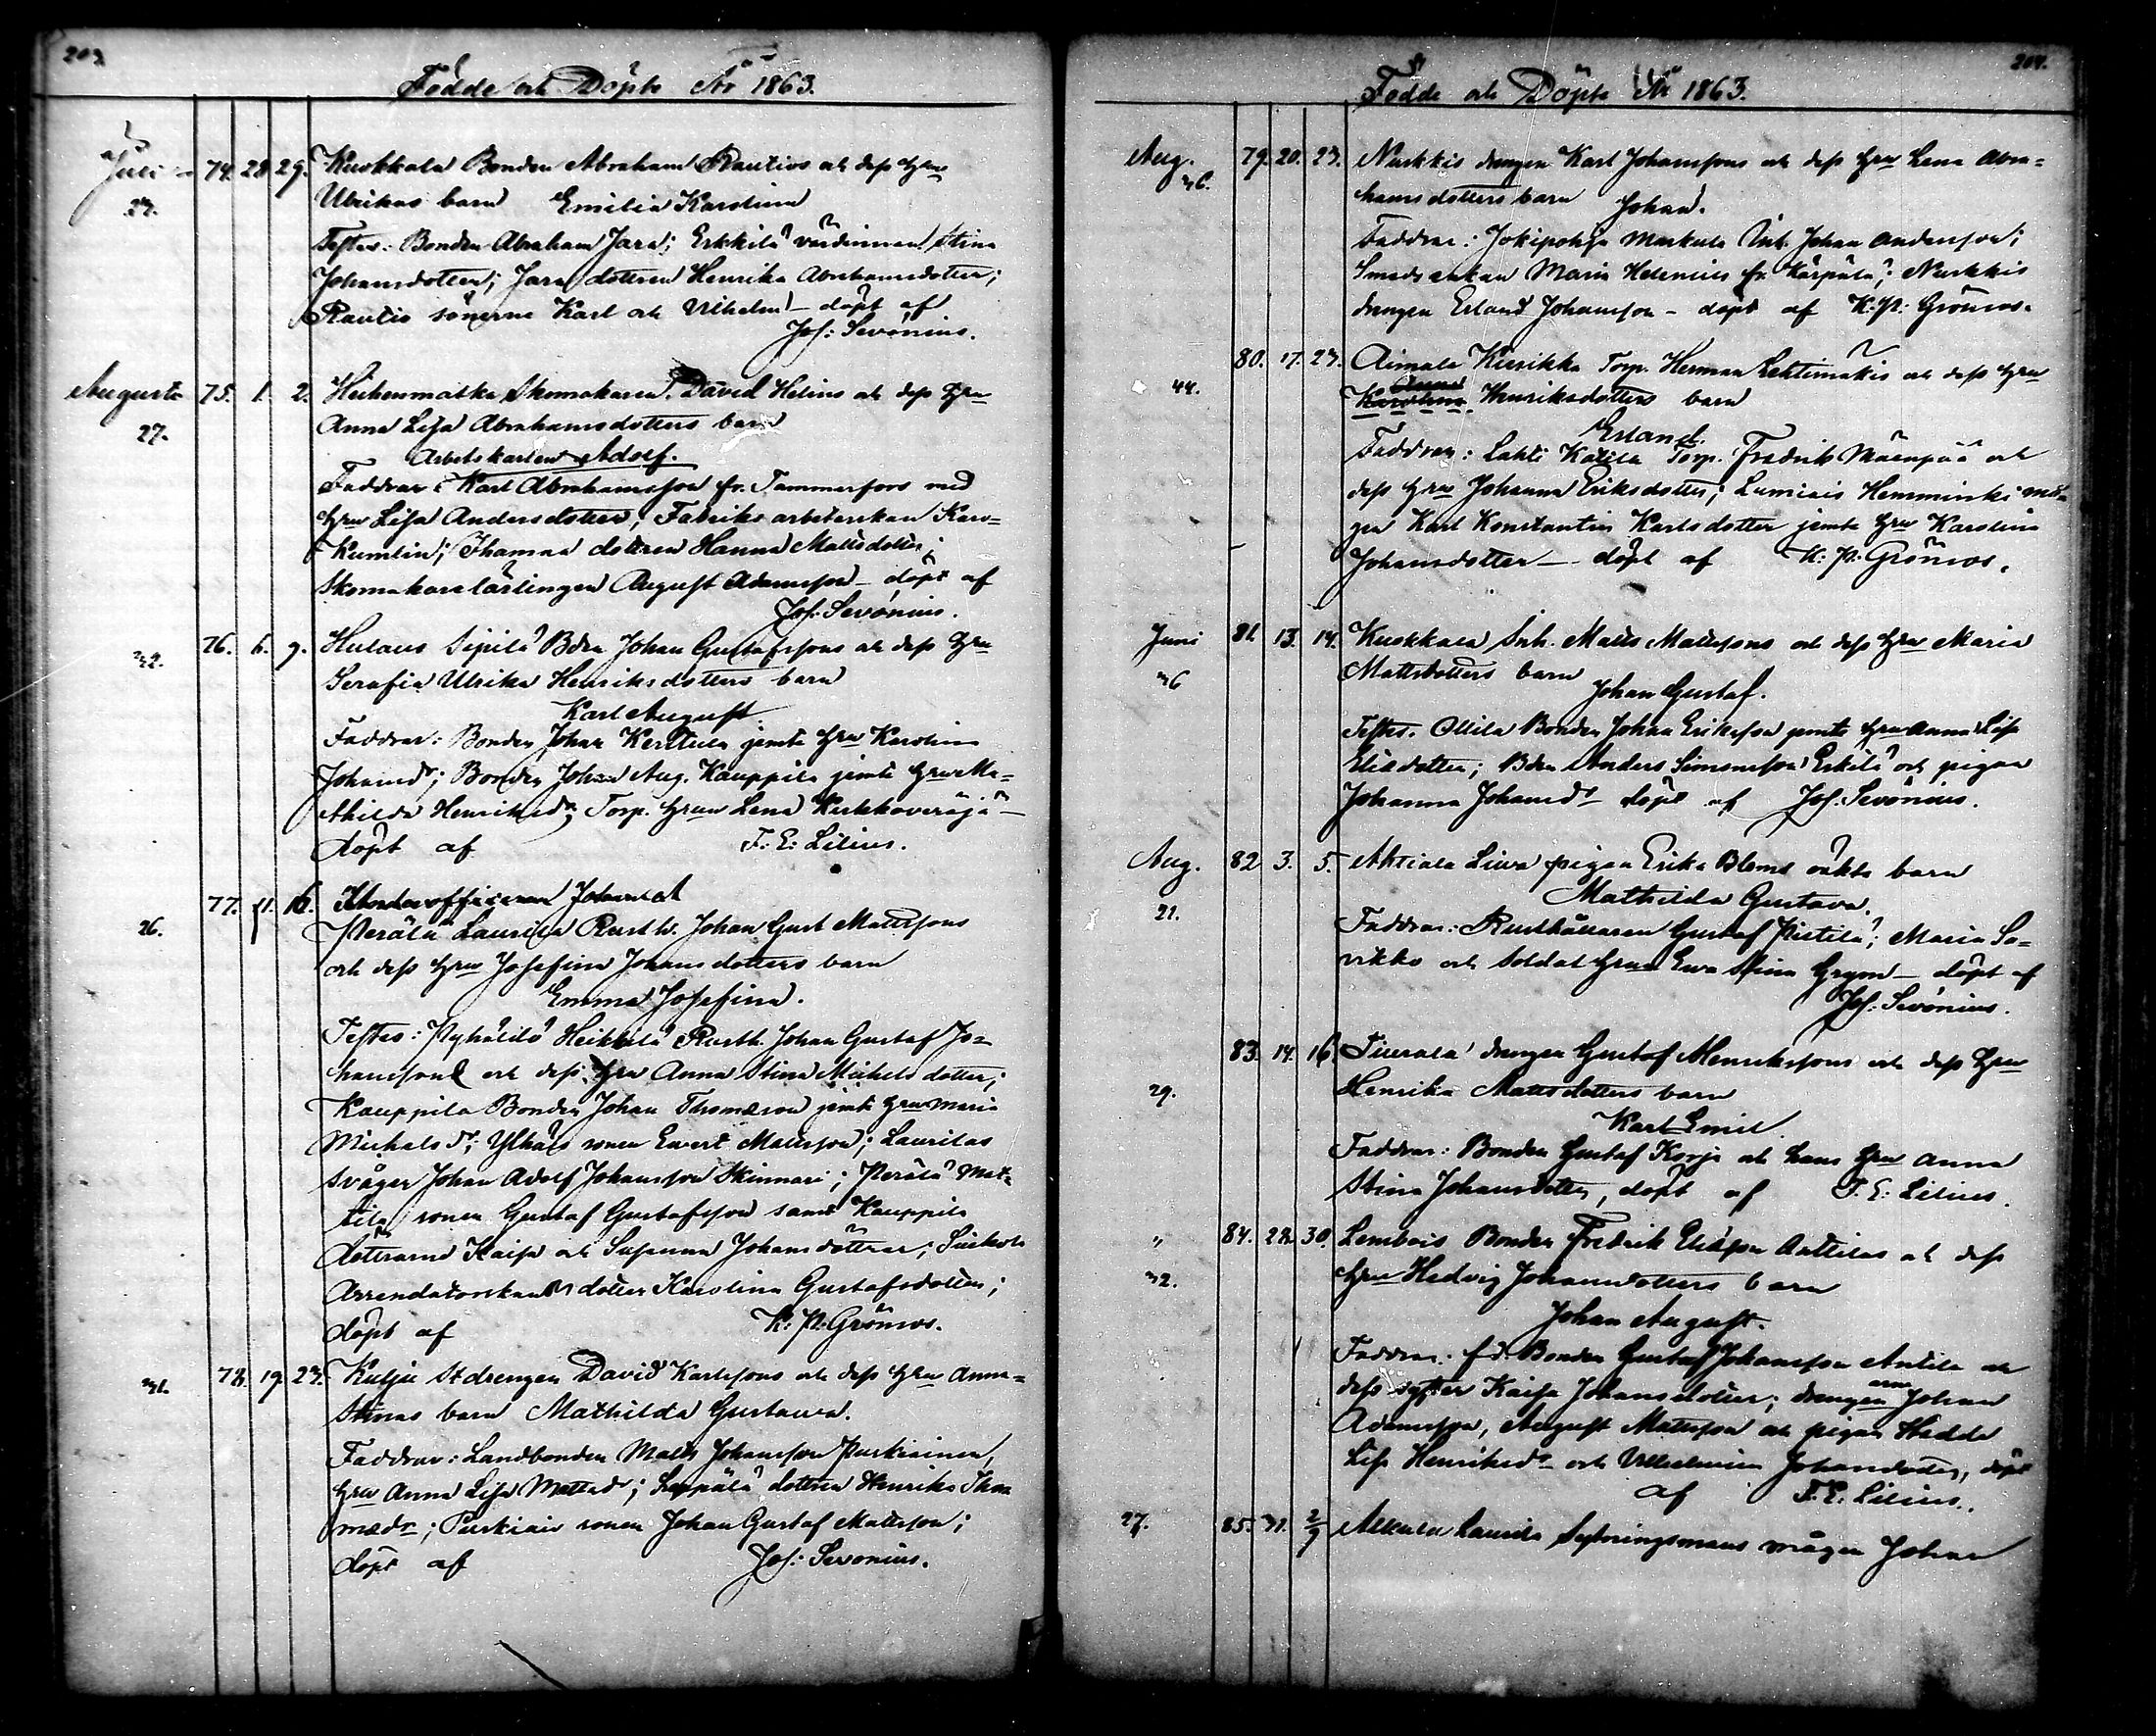 203.
Födde och Döpte År 1863.
Juli 74. 28. 29. Kuokkala Bonden Abraham Rautios och dess hustru
27. Ulrikas barn Emilia Karolina
Testes: Bonden Abraham Jara; Erkkilä värdinnan Stina
Johansdotter; Jara dottren Henrika Abrahamsdotter;
Rautio sönerne Karl och Vilhelm – döpt af
Jos: Sevonius.
Augusti 75. 1. 2. Skomakaren David Helins och dess hru
27. Anna Lisa Abrahamsdotters barn
Arbetskarlen Adolf.
Faddrar: Karl Abrahamsson fr. Tammerfors med
hru Lisa Andersdotter; Fabriks arbeterskan Karo=
Kumlin; dottren Hanna Mattsdotter;
Skomakarelärlingen August Adamsson – döpt af
Jos: Sevonius.
76. 6. 9. Hulaus Sipilä Bdn Johan Gustafssons och dess hru
32. Serafia Ulrika Henriksdotters barn
Karl August.
Faddrar: Bonden Johan Kerttula jemte hru Karolina
Johansdr; Bonden Johan Aug. Kauppila jemte hru Ma=
thilda Henriksdr; Torp. hrun Lena –
döpt af F. E. Lilius.
77. 11. 16. Johan
26. Perälä Laurila Rusth. Johan Gust Mattssons
och dess hru Josefina Johansdotters barn
Emma Josefina.
Testes: Heikkilä Rusth. Johan Gustaf Jo=
hansson och dess hru Anna Stina Michelsdotter;
Kauppila Bonden Johan Thomasson jemte hru Maria
Michelsdr; sonen Evert Mattsson; Laurilas
svåger Johan Adolf Johansson Skinnari; Perälä Mat=
tila sonen Gustaf Gustafsson samt Kauppila
döttrarne Kaisa och Susanna Johansdöttrar;
Arrendatorskans dotter Karolina Gustafsdotter;
döpt af K: P: Grönros.
78. 19. 23. Kulju St.drengen David Karlssons och dess hru Anna=
31. Stinas barn Mathilda Gustava.
Faddrar: Landbonden Matts Johansson Purkiainen,
hru Anna Lisa Mattsdr; Seppälä dottren Henrika Tho=
masdr; Purkiais sonen Johan Gustaf Mattsson;
döpt af Jos: Sevonius.
204.
Födde och Döpte År 1863.
Aug. 79. 20. 23. Nurkkis drengen Karl Johanssons och dess hru Lena Abra=
36. hamsdotters barn Johan.
Faddrar: Jokipohja Markula Inh. Johan Andersson;
Smeds enkan Maria Helenius fr. Kärpälä; Nurkkis
drengen Erland Johansson – döpt af K: P: Grönros.
80. 17. 23. Aimala Torp. Herman Lehtimäkis och dess hru
44. Karolina Henriksdotters barn
Erland.
Faddrar: Lahti Katila Torp. Fredrik Mäenpää och
dess hru Johanna Eriksdotter; Lumiais Hemminki må=
gen Karl Konstantin jemte hru Karolina
Johansdotter – döpt af K: P: Grönros.
Juni 81. 13. 14. Kuokkala Inh. Matts Mattssons och dess hru Maria
36 Mattsdotters barn
Johan Gustaf.
Testes. Ollila Bonden Johan Eriksson jemte hru Anna Lisa
Eliædotter; Bdn Anders Simonsson Erkilä och pigan
Johanna Johansdr – döpt af Jos: Sevonius.
Aug. 82 3. 5. Ahtiala Liuva pigan Erika Bloms oäkta barn
21. Mathilda Gustava.
Faddrar: Rusthållaren Gustaf Pietilä; Maria Sa=
vikko och Soldat hrun Eva Stina Grym – döpt af
Jos: Sevonius.
83. 14. 16. drengen Gustaf Henrikssons och dess hru
29. Henrika Mattsdotters barn
Karl Emil.
Faddrar: Bonden Gustaf Korja och hans hru Anna
Stina Johansdotter, döpt af F. E. Lilius.
" 84. 28. 30. Lembois Bonden Fredrik Eliæson Anttilas och dess
32. hru Hedvig Johansdotters barn
Johan August.
Faddrar: f.d. Bonden Gustaf Johansson Antila och
dess syster Kaisa Johansdotter; drengarne Johan
Adamsson, August Mattsson och pigan Hedda
Lisa Henriksdr och Vilhelmina Johansdotter, döpt
af F. E. Lilius.
27. 85. 31. 2/9 Laurila Sexmans mågen Johan